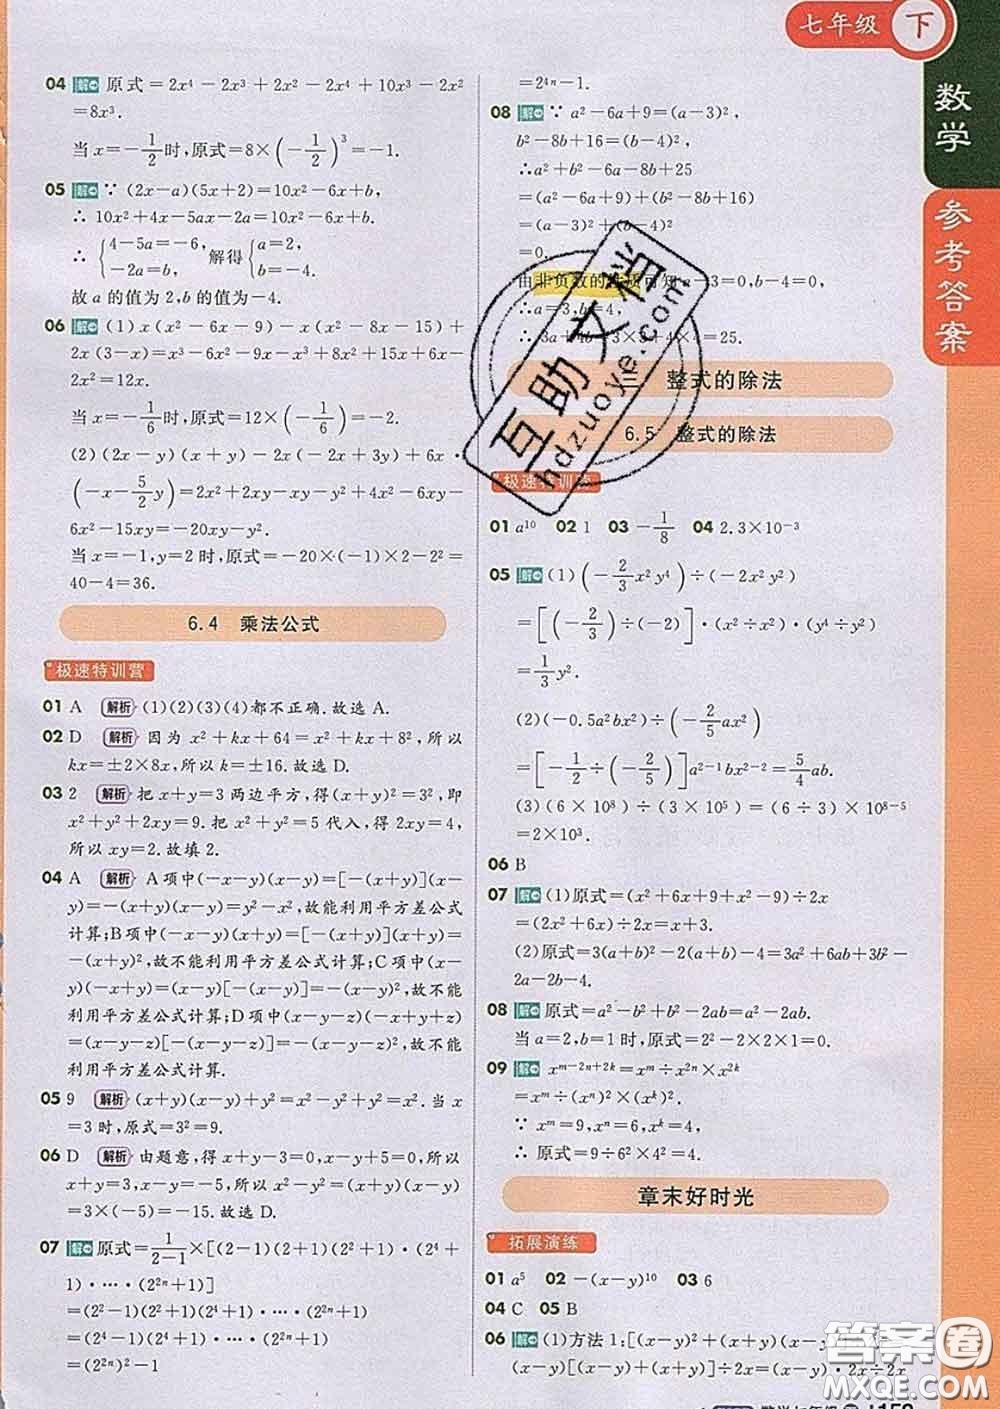 七年级 下
数学
参考答案
04 解 原式=2x⁴-2x³+2x²-2x⁴+10x³-2x²
=8x³.
当 x=-1/2 时,原式=8×(-1/2)³=-1.
05 解 ∵ (2x-a)(5x+2)=10x²-6x+b,
∴ 10x²+4x-5ax-2a=10x²-6x+b.
∴ {4-5a=-6, -2a=b, 解得 {a=2, b=-4.
故 a 的值为 2,b 的值为-4.
06 解 (1) x(x²-6x-9)-x(x²-8x-15)+
2x(3-x)=x³-6x²-9x-x³+8x²+15x+6x-
2x²=12x.
当 x=-1/6 时,原式=12×(-1/6)=-2.
(2)(2x-y)(x+y)-2x(-2x+3y)+6x·
(-x-5/2y)=2x²+2xy-xy-y²+4x²-6xy-
6x²-15xy=-20xy-y².
当 x=-1,y=2 时,原式=-20×(-1)×2-2²=
40-4=36.
6.4 乘法公式
极速特训营
01 A 解析 (1)(2)(3)(4)都不正确.故选 A.
02 D 解析 因为 x²+kx+64=x²+kx+8²,所以
kx=±2×8x,所以 k=±16.故选 D.
03 2 解析 把 x+y=3 两边平方,得(x+y)²=3²,即
x²+y²+2xy=9.把 x²+y²=5 代入,得 2xy=4,
所以 xy=2.故填 2.
04 A 解析 A 项中(-x-y)(x-y)=[-(x+y)](x-
y)=-(x+y)(x-y)=y²-x²,故能利用平方差公式
计算;B项中(-x-y)(x+y)=[-(x+y)](x+y)=
-(x+y)²,故不能利用平方差公式计算;C项中(x-
y)(-x+y)=(x-y)[-(x-y)]=-(x-y)²,故不能
利用平方差公式计算;D项中(x-y-z)(-x+y+z)
=(x-y-z)[-(x-y-z)]=-(x-y-z)²,故不能利
用平方差公式计算.
05 9 解析 (x+y)(x-y)+y²=x²-y²+y²=x².当 x
=3 时,原式=3²=9.
06 D 解析 由题意,得 x+y-3=0,x-y+5=0,所以
x+y=3,x-y=-5,所以 x²-y²=(x+y)(x-y)
=3×(-5)=-15.故选 D.
07 解 原式=1/(2-1)×[(2-1)(2+1)(2²+1)·(2⁴+
1)·…·(2²ⁿ+1)]
=(2²-1)(2²+1)(2⁴+1)·…·(2²ⁿ+1)
=(2⁴-1)(2⁴+1)·…·(2²ⁿ+1)
=(2²ⁿ)²-1
=2⁴ⁿ-1.
08 解 ∵ a²-6a+9=(a-3)²,
b²-8b+16=(b-4)²,
∴a²+b²-6a-8b+25
=(a²-6a+9)+(b²-8b+16)
=(a-3)²+(b-4)²
=0,
由非负数的性质可知 a-3=0,b-4=0,
∴a=3,b=4,
∴3a+4b=3×3+4×4=25.
三 整式的除法
6.5 整式的除法
极速特训营
01 a¹⁰ 02 1 03 -1/8 04 2.3×10⁻³
05 解 (1)(-2/3x²y⁴)÷(-2x²y²)
=[(-2/3)÷(-2)]·(x²÷x²)·(y⁴÷y²)
=1/3y².
(2)(-0.5a²bx²)÷(-2/5ax²)
=[-1/2÷(-2/5)]a²⁻¹bx²⁻²=5/4ab.
(3)(6×10⁸)÷(3×10⁵)=(6÷3)×10⁸⁻⁵
=2×10³.
06 B
07 解 (1)原式=(x²+6x+9+x²-9)÷2x
=(2x²+6x)÷2x=x+3.
(2)原式=3(a+b)²-2(a+b)-4=3a²+6ab+3b²-
2a-2b-4.
08 解 原式=a²-b²+b²-2ab=a²-2ab.
当 a=2,b=1 时,原式=2²-2×2×1=0.
09 解 xᵐ⁻²ⁿ⁺²ᵏ=xᵐ÷x²ⁿ×x²ᵏ
=xᵐ÷(xⁿ)²×(xᵏ)².
∵ xᵐ=9,xⁿ=6,xᵏ=4,
∴ 原式=9÷6²×4²=4.
章末好时光
拓展演练
01 a⁵ 02 -(x-y)¹⁰ 03 6
04 C 05 B
06 解 (1)方法 1:[(x-y)²+(x+y)(x-y)]÷2x=
(x-y)[(x-y)+(x+y)]÷2x=(x-y)·2x÷2x
互助文档
hdzuoye.com
答案圈
MXQE.COM